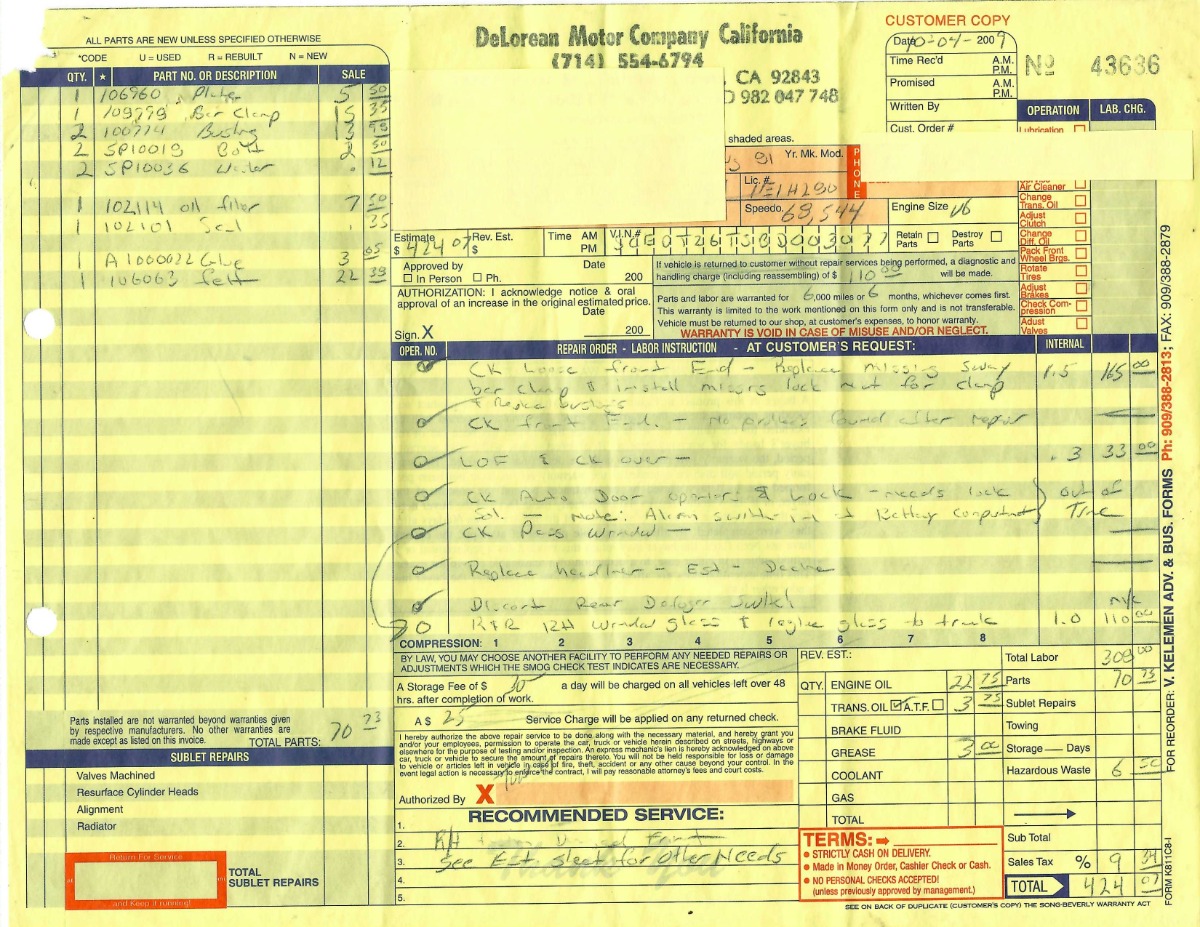 CUSTOMER COPY
DeLorean Motor Company California
(714) 554-6794
, CA 92843
982 047 748
Date 10-04-2009
Time Rec'd A.M. P.M.
Promised A.M. P.M.
Written By
Cust. Order #
No 43636
ALL PARTS ARE NEW UNLESS SPECIFIED OTHERWISE
*CODE U = USED R = REBUILT N = NEW
QTY. * PART NO. OR DESCRIPTION SALE
1 106960 Plate 5 50
1 109779 Bar Clamp 15 35
2 100774 Bushing 13
2 SP10019 Bolt 2 50
2 SP10036 Washer . 12
1 102114 oil filter 7 50
1 102101 Seal . 35
1 A1000022 Glue 3 65
1 106063 felt 22 39
OPERATION LAB. CHG.
Lubrication
Air Cleaner
Change Trans. Oil
Adjust Clutch
Change Diff. Oil
Pack Front Wheel Brgs.
Rotate Tires
Adjust Brakes
Check Compression
Adjust Valves
shaded areas.
81 Yr. Mk. Mod.
PHONE
Lic. #
Speedo. 69,544 Engine Size V6
Estimate $ 424 07 Rev. Est. $ Time AM PM V.I.N.#
Retain Parts Destroy Parts
Approved by Date
In Person Ph. 200
AUTHORIZATION: I acknowledge notice & oral
approval of an increase in the original estimated price.
Date
Sign. X 200
If vehicle is returned to customer without repair services being performed, a diagnostic and
handling charge (including reassembling) of $ 110 00 will be made.
Parts and labor are warranted for 6,000 miles or 6 months, whichever comes first.
This warranty is limited to the work mentioned on this form only and is not transferable.
Vehicle must be returned to our shop, at customer's expenses, to honor warranty.
WARRANTY IS VOID IN CASE OF MISUSE AND/OR NEGLECT.
OPER. NO. REPAIR ORDER - LABOR INSTRUCTION - AT CUSTOMER'S REQUEST: INTERNAL
CK Loose front End - Replace missing Sway 1.5 165 00
bar clamp & install missing lock nut for clamp
& Replace bushings
CK front End. - No problem found after repair
LOF & CK over - .3 33 00
CK Auto Door openers & Lock - needs lock } out of
Sol. - Note: Alarm switch in Battery compartment } Time
CK Pass Window -
Replace headliner - Est - Decline
Discont Rear Defogger Switch n/c
R&R RH Window glass & reglue glass to track 1.0 110 00
COMPRESSION: 1 2 3 4 5 6 7 8
BY LAW, YOU MAY CHOOSE ANOTHER FACILITY TO PERFORM ANY NEEDED REPAIRS OR
ADJUSTMENTS WHICH THE SMOG CHECK TEST INDICATES ARE NECESSARY.
A Storage Fee of $ 30 a day will be charged on all vehicles left over 48
hrs. after completion of work.
A $ 25 Service Charge will be applied on any returned check.
I hereby authorize the above repair service to be done along with the necessary material, and hereby grant you
and/or your employees, permission to operate the car, truck or vehicle herein described on streets, highways or
elsewhere for the purpose of testing and/or inspection. An express mechanic's lien is hereby acknowledged on above
car, truck or vehicle to secure the amount of repairs thereto. You will not be held responsible for loss or damage
to vehicle or articles left in vehicle in case of fire, theft, accident or any other cause beyond your control. In the
event legal action is necessary to enforce the contract, I will pay reasonable attorney's fees and court costs.
Authorized By X
REV. EST.:
QTY. ENGINE OIL 22 75
TRANS. OIL A.T.F. 3 75
BRAKE FLUID
GREASE 3 00
COOLANT
GAS
TOTAL
Total Labor 308 00
Parts 70 73
Sublet Repairs
Towing
Storage — Days
Hazardous Waste 6 50
Sub Total
Sales Tax % 9 34
TOTAL 424 07
Parts installed are not warranted beyond warranties given
by respective manufacturers. No other warranties are
made except as listed on this invoice. TOTAL PARTS: 70 73
SUBLET REPAIRS
Valves Machined
Resurface Cylinder Heads
Alignment
Radiator
Return For Service
and Keep it running!
TOTAL
SUBLET REPAIRS
RECOMMENDED SERVICE:
1.
2. RH front
3. See Est. Sheet for other Needs
4.
5.
Thank You
TERMS:
STRICTLY CASH ON DELIVERY.
Made in Money Order, Cashier Check or Cash.
NO PERSONAL CHECKS ACCEPTED!
(unless previously approved by management.)
SEE ON BACK OF DUPLICATE (CUSTOMER'S COPY) THE SONG-BEVERLY WARRANTY ACT
FORM K811C8-I
FOR REORDER: V. KELEMEN ADV. & BUS. FORMS Ph: 909/388-2813; FAX: 909/388-2879